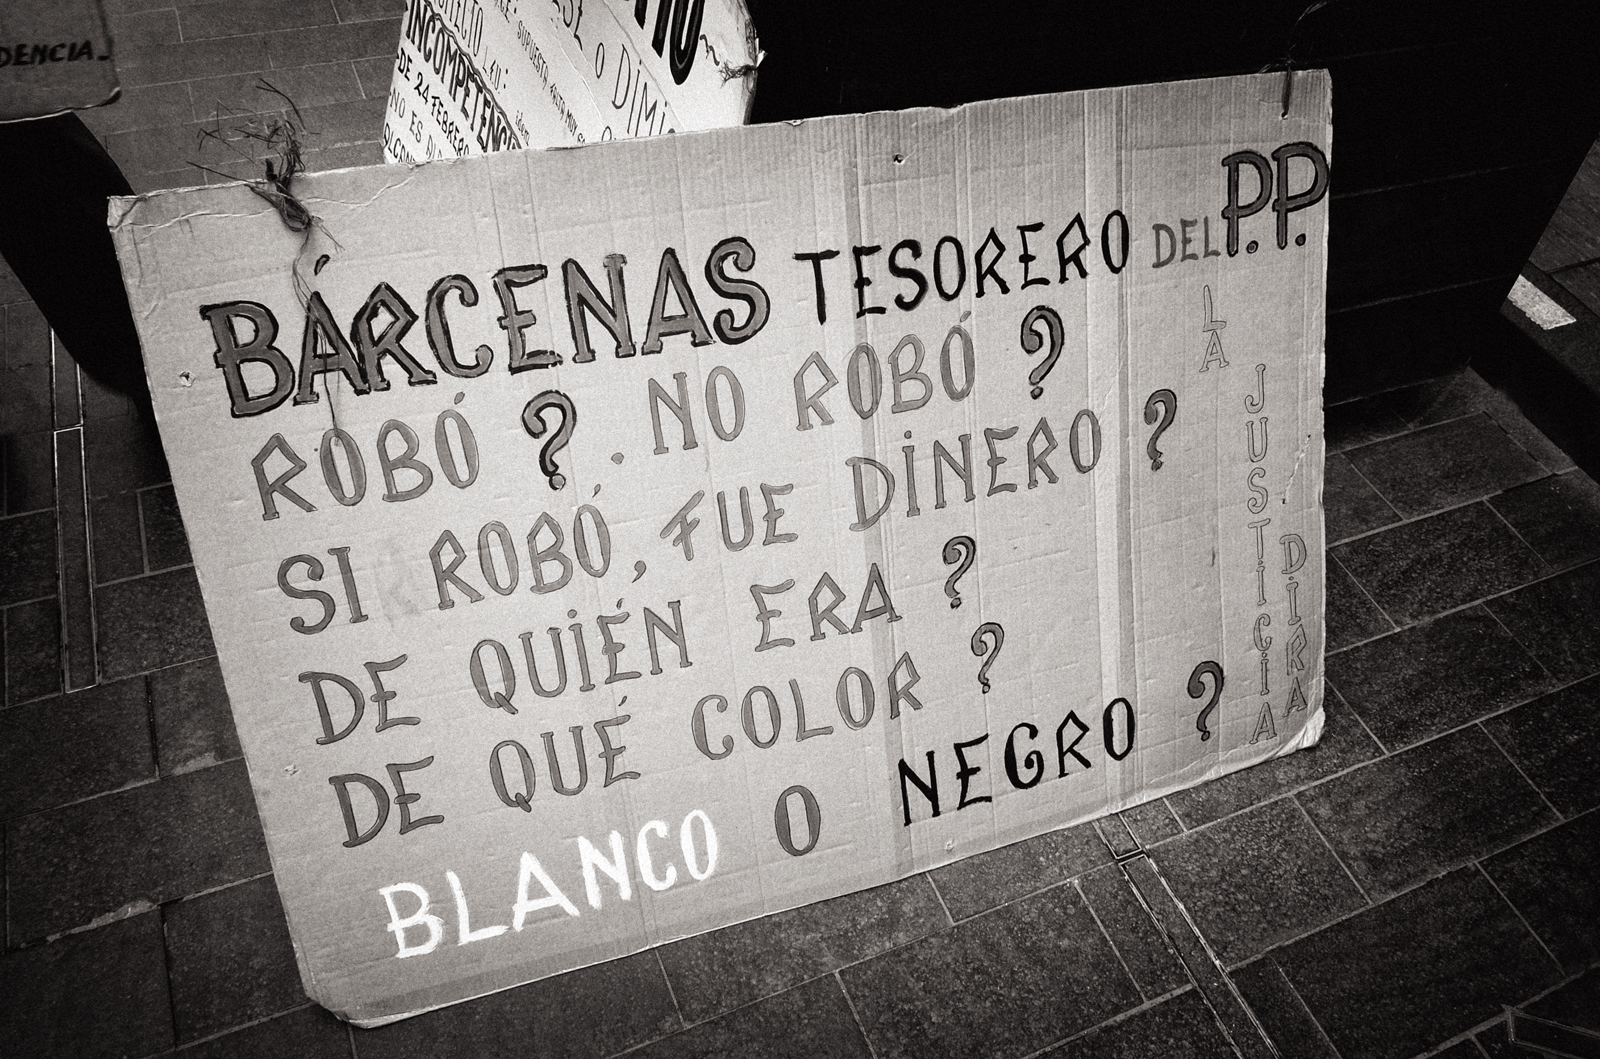 DENCIA.
INCOMPETENC
DE 24 FEBRERO
NO ES
O DIMI
BÁRCENAS TESORERO DEL P.P.
ROBÓ ? . NO ROBÓ ?
SI ROBÓ, FUE DINERO ?
DE QUIÉN ERA ?
DE QUÉ COLOR ?
BLANCO O NEGRO ?
LA
JUSTICIA
DIRA